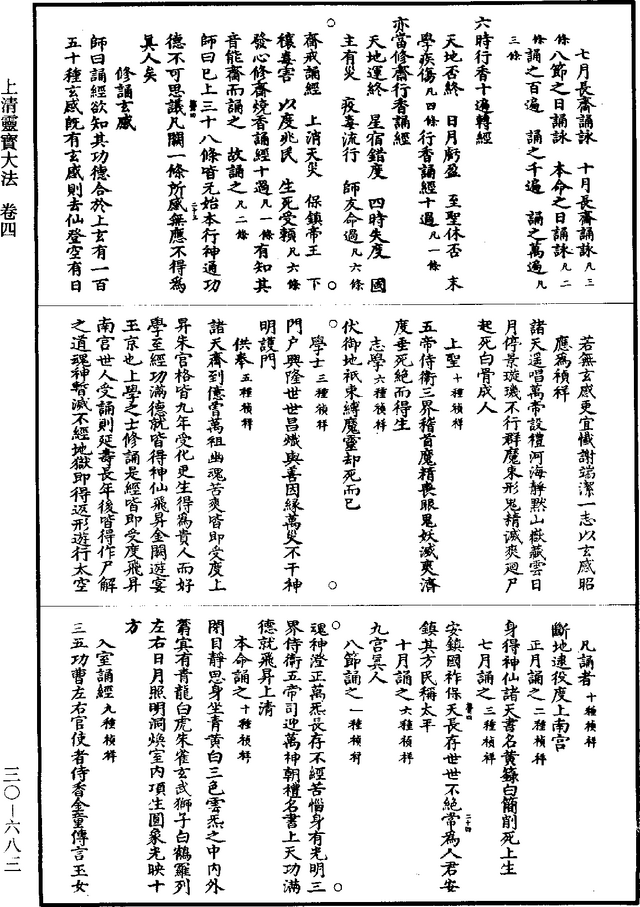 七月長齋誦詠　十月長齋誦詠凡三
條八節之日誦詠　本命之日誦詠凡二
條誦之百遍　誦之千遍　誦之萬遍凡
三條
六時行香十遍轉經
天地否終　日月虧盈　至聖休否　末
學疾傷凡四條行香誦經十過凡一條
亦當修齋行香誦經
天地運終　星宿錯度　四時失度　國
主有災　疫毒流行　師友命過凡六條
齋戒誦經　上消天災　保鎮帝王　下
禳毒害　以度兆民　生死受賴凡六條
發心修齋燒香誦經十過凡一條有知其
音能齋而誦之　故誦之凡二條
師曰已上三十八條皆元始本行神通功
德不可思議凡闕一條所感無應不得為
真人矣
修誦玄感
師曰誦經欲知其功德合於上玄有一百
五十種玄感既有玄感則去仙登空有日
若無玄感更宜懺謝端潔一志以玄感昭
應為禎祥
諸天遥唱萬帝設禮河海靜默山嶽藏雲日
月停景璇璣不行群魔束形鬼精滅爽迴尸
起死白骨成人
上聖十種禎祥
五帝侍衛三界稽首魔精喪眼鬼妖滅爽濟
度垂死絕而得生
志學六種禎祥
伏御地祇束縛魔靈却死而已
學士三種禎祥
門户興隆世世昌熾與善因緣萬災不干神
明護門
供奉五種禎祥
諸天齋到億曾萬祖幽魂苦爽皆即受度上
昇朱宮格皆九年受化更生得為貴人而好
學至經功滿德就皆得神仙飛昇金闕遊宴
玉京也上學之士修誦是經皆即受度飛昇
南宮世人受誦則延壽長年後皆得作尸解
之道魂神暫滅不經地獄即得返形遊行太空
凡誦者十種禎祥
斷地逮役度上南宮
正月誦之二種禎祥
身得神仙諸天書名黄籙白簡削死上生
七月誦之三種禎祥
安鎮國祚保天長存世世不絕常為人君安
鎮其方民稱太平
十月誦之六種禎祥
九宮真人
八節誦之一種禎祥
魂神澄正萬炁長存不經苦惱身有光明三
界侍衛五帝司迎萬神朝禮名書上天功滿
德就飛昇上清
本命誦之十種禎祥
閉目靜思身坐青黄白三色雲炁之中内外
蓊冥有青龍白虎朱雀玄武獅子白鶴羅列
左右日月照明洞煥室内項生圓象光映十
方
入室誦經九種禎祥
三五功曹左右官使者侍香金童傳言玉女
上清靈寶大法　卷四
三〇—六八三